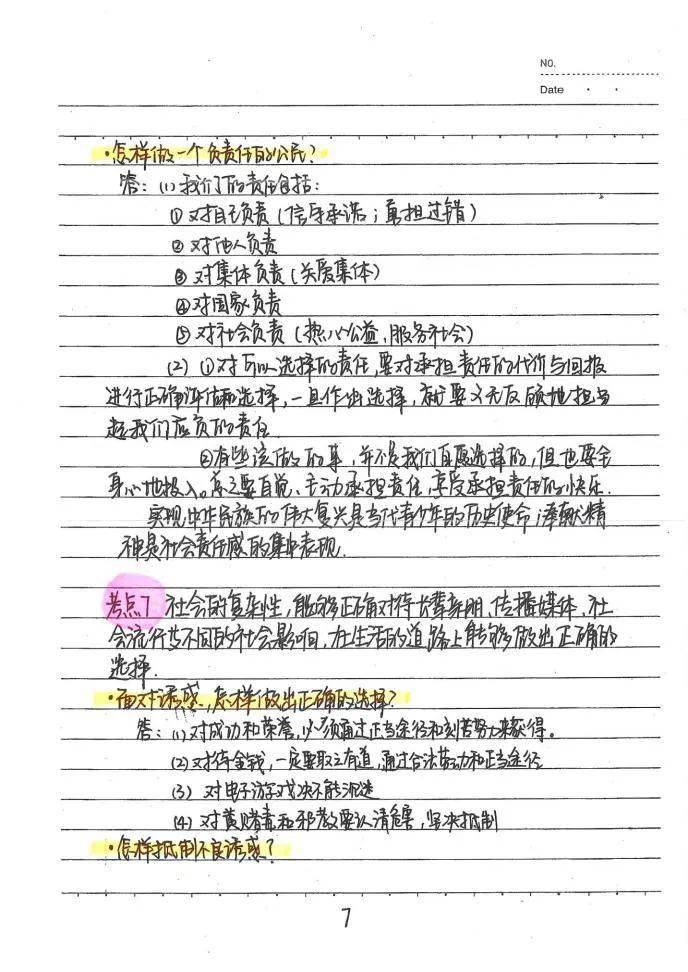 NO.
Date
·怎样做一个负责任的公民？
答：(1)我们的责任包括：
①对自己负责（信守承诺；勇担过错）
②对他人负责
③对集体负责（关爱集体）
④对国家负责
⑤对社会负责（热心公益，服务社会）
(2)①对可以选择的责任，要对承担责任的代价与回报
进行正确评估和选择，一旦作出选择，就要义无反顾地担当
起我们应负的责任.
②有些该做的事，并不是我们自愿选择的，但也要全
身心地投入。总之要自觉、主动承担责任，享受承担责任的快乐.
实现中华民族的伟大复兴是当代青少年的历史使命；奉献精
神是社会责任感的集中表现.
考点7 社会的复杂性，能够正确对待长辈亲朋、传播媒体、社
会流行等不同的社会影响，在生活的道路上能够做出正确的
选择.
·面对诱惑，怎样做出正确的选择？
答：(1)对成功和荣誉，必须通过正当途径和刻苦努力来获得。
(2)对待金钱，一定要取之有道，通过合法劳动和正当途径
(3) 对电子游戏决不能沉迷
(4) 对黄赌毒和邪教要认清危害，坚决抵制
·怎样抵制不良诱惑？
7